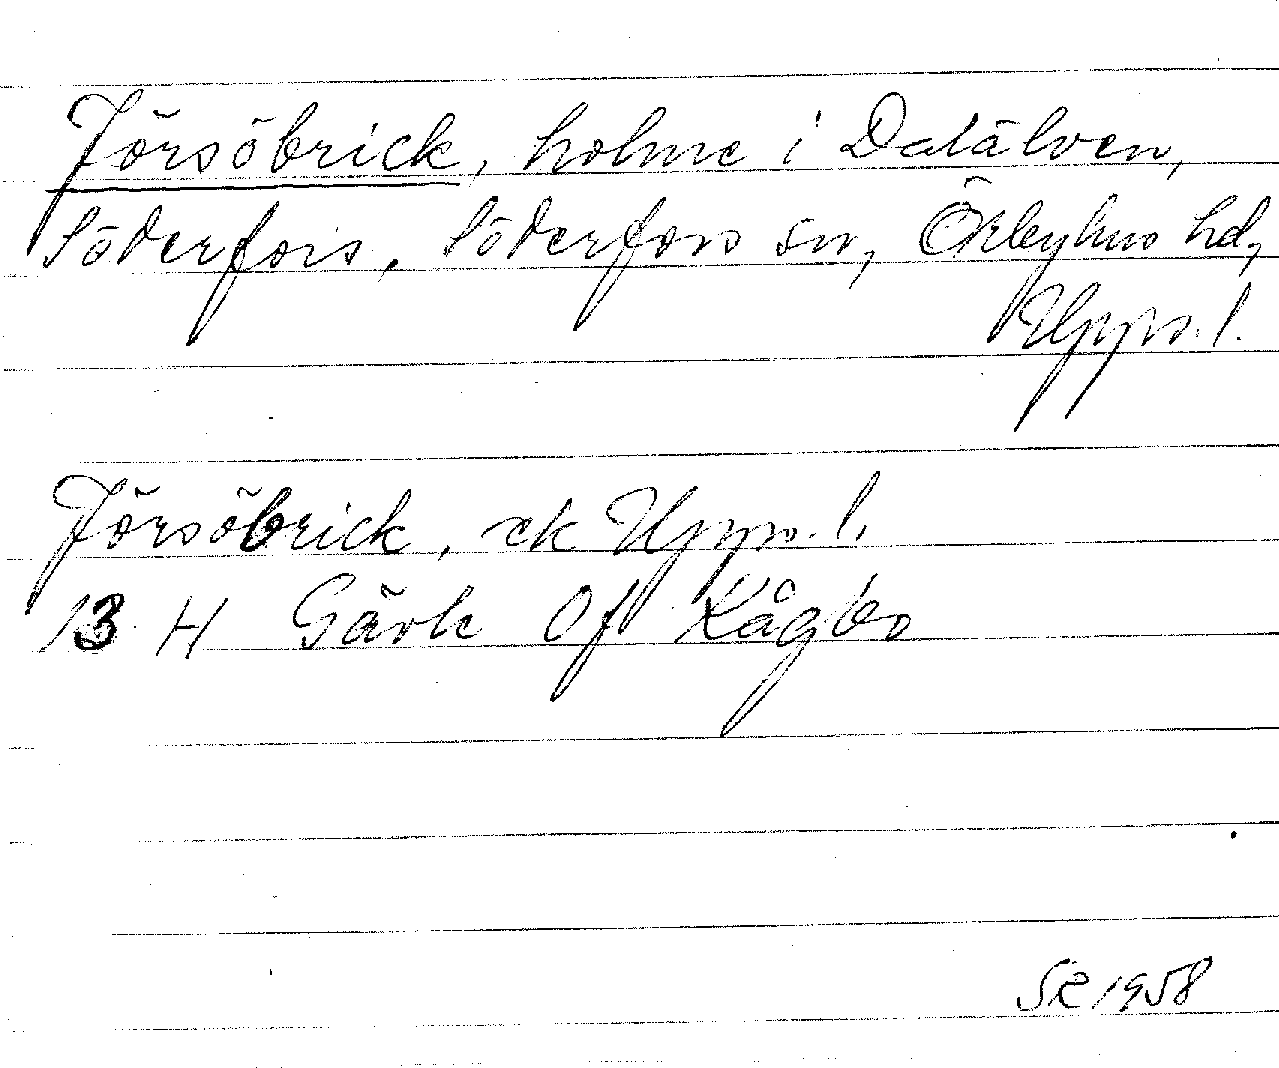 Jörsöbrick, holme i Dalälven,
Söderfors, Söderfors sn, Örbyhus hd,
Upps. l.
Jörsöbrick, ek Upps. l.
13 H Gävle Of Kågbo
SR 1958